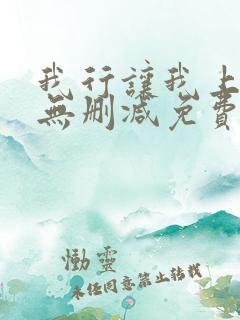 我行讓我上
無刪減免費
慟靈
未经同意禁止转载